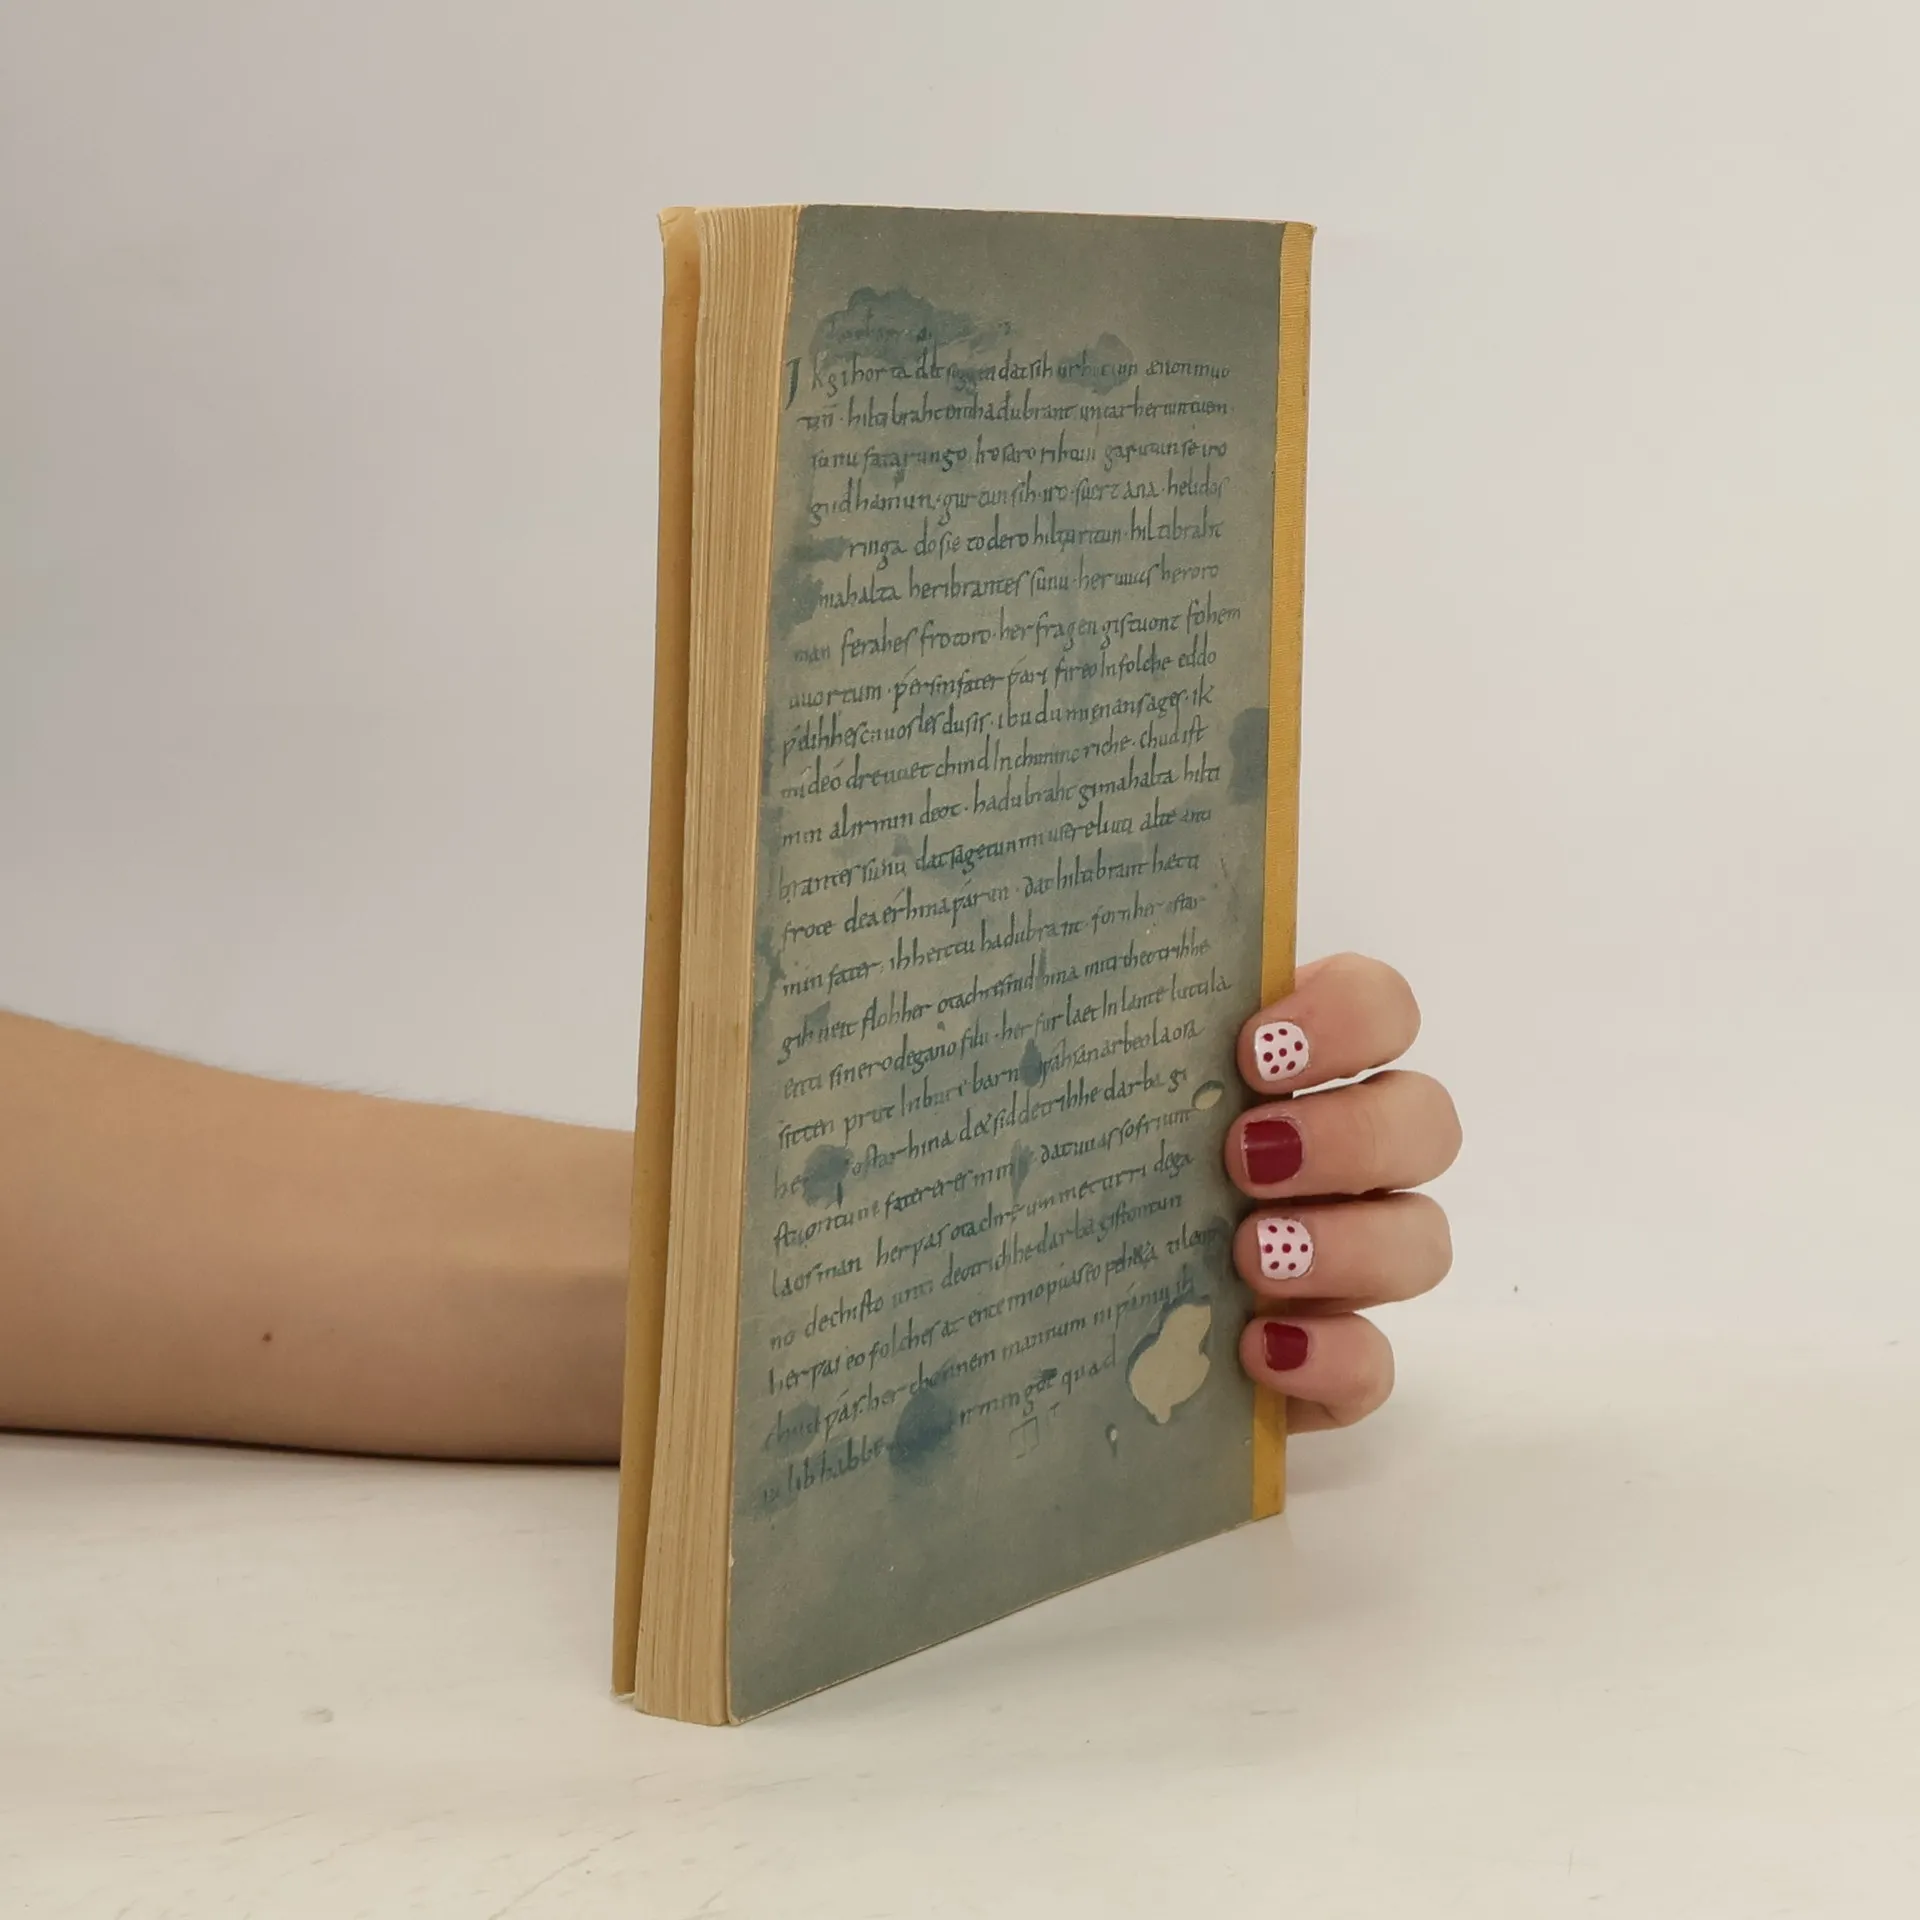 Ik gihorta dat seggen dat sih urhettun ænon muo
tin · hiltibraht enti hadubrant untar heriun tuem ·
sunu fatarungo iro saro rihtun garutun se iro
gudhamun · gurtun sih · iro · suert ana · helidos
ringa do sie to dero hiltu ritun · hiltibraht
mahalta heribrantes sunu · her uuas heroro
man ferahes frotoro · her fragen gistuont fohem
uuortum · ƿer sin fater ƿari fireo In folche eddo
ƿelihhes cnuosles du sis · ibu du mi enan sages · ik
mi de odre uuet chind In chunincriche · chud ist
min al irmin deot · hadubraht gimahalta hilti
brantes sunu dat sagetun mi usere liuti alte anti
frote dea erhina ƿarun · dat hiltibrant hætti
min fater · ih heittu hadubrant · forn her ostar
gihueit floh her otachres nid hina miti theotrihhe
enti sinero degano filu · her furlaet In lante luttila
sitten prut In bure barn ƿahsan arbeo laosa
he ostar hina d& sid detrihhe darba gi
stuontum fatereres min dat uuas so friunt
laos man her ƿas otachre ummet tirri dega
no dechisto unti deotrichhe darba gistontun
her ƿas eo folches at ente imo ƿuas eo peh&a ti leop
chud ƿas her chonnem mannum ni ƿaniu ih
lib habbe irmingot quad